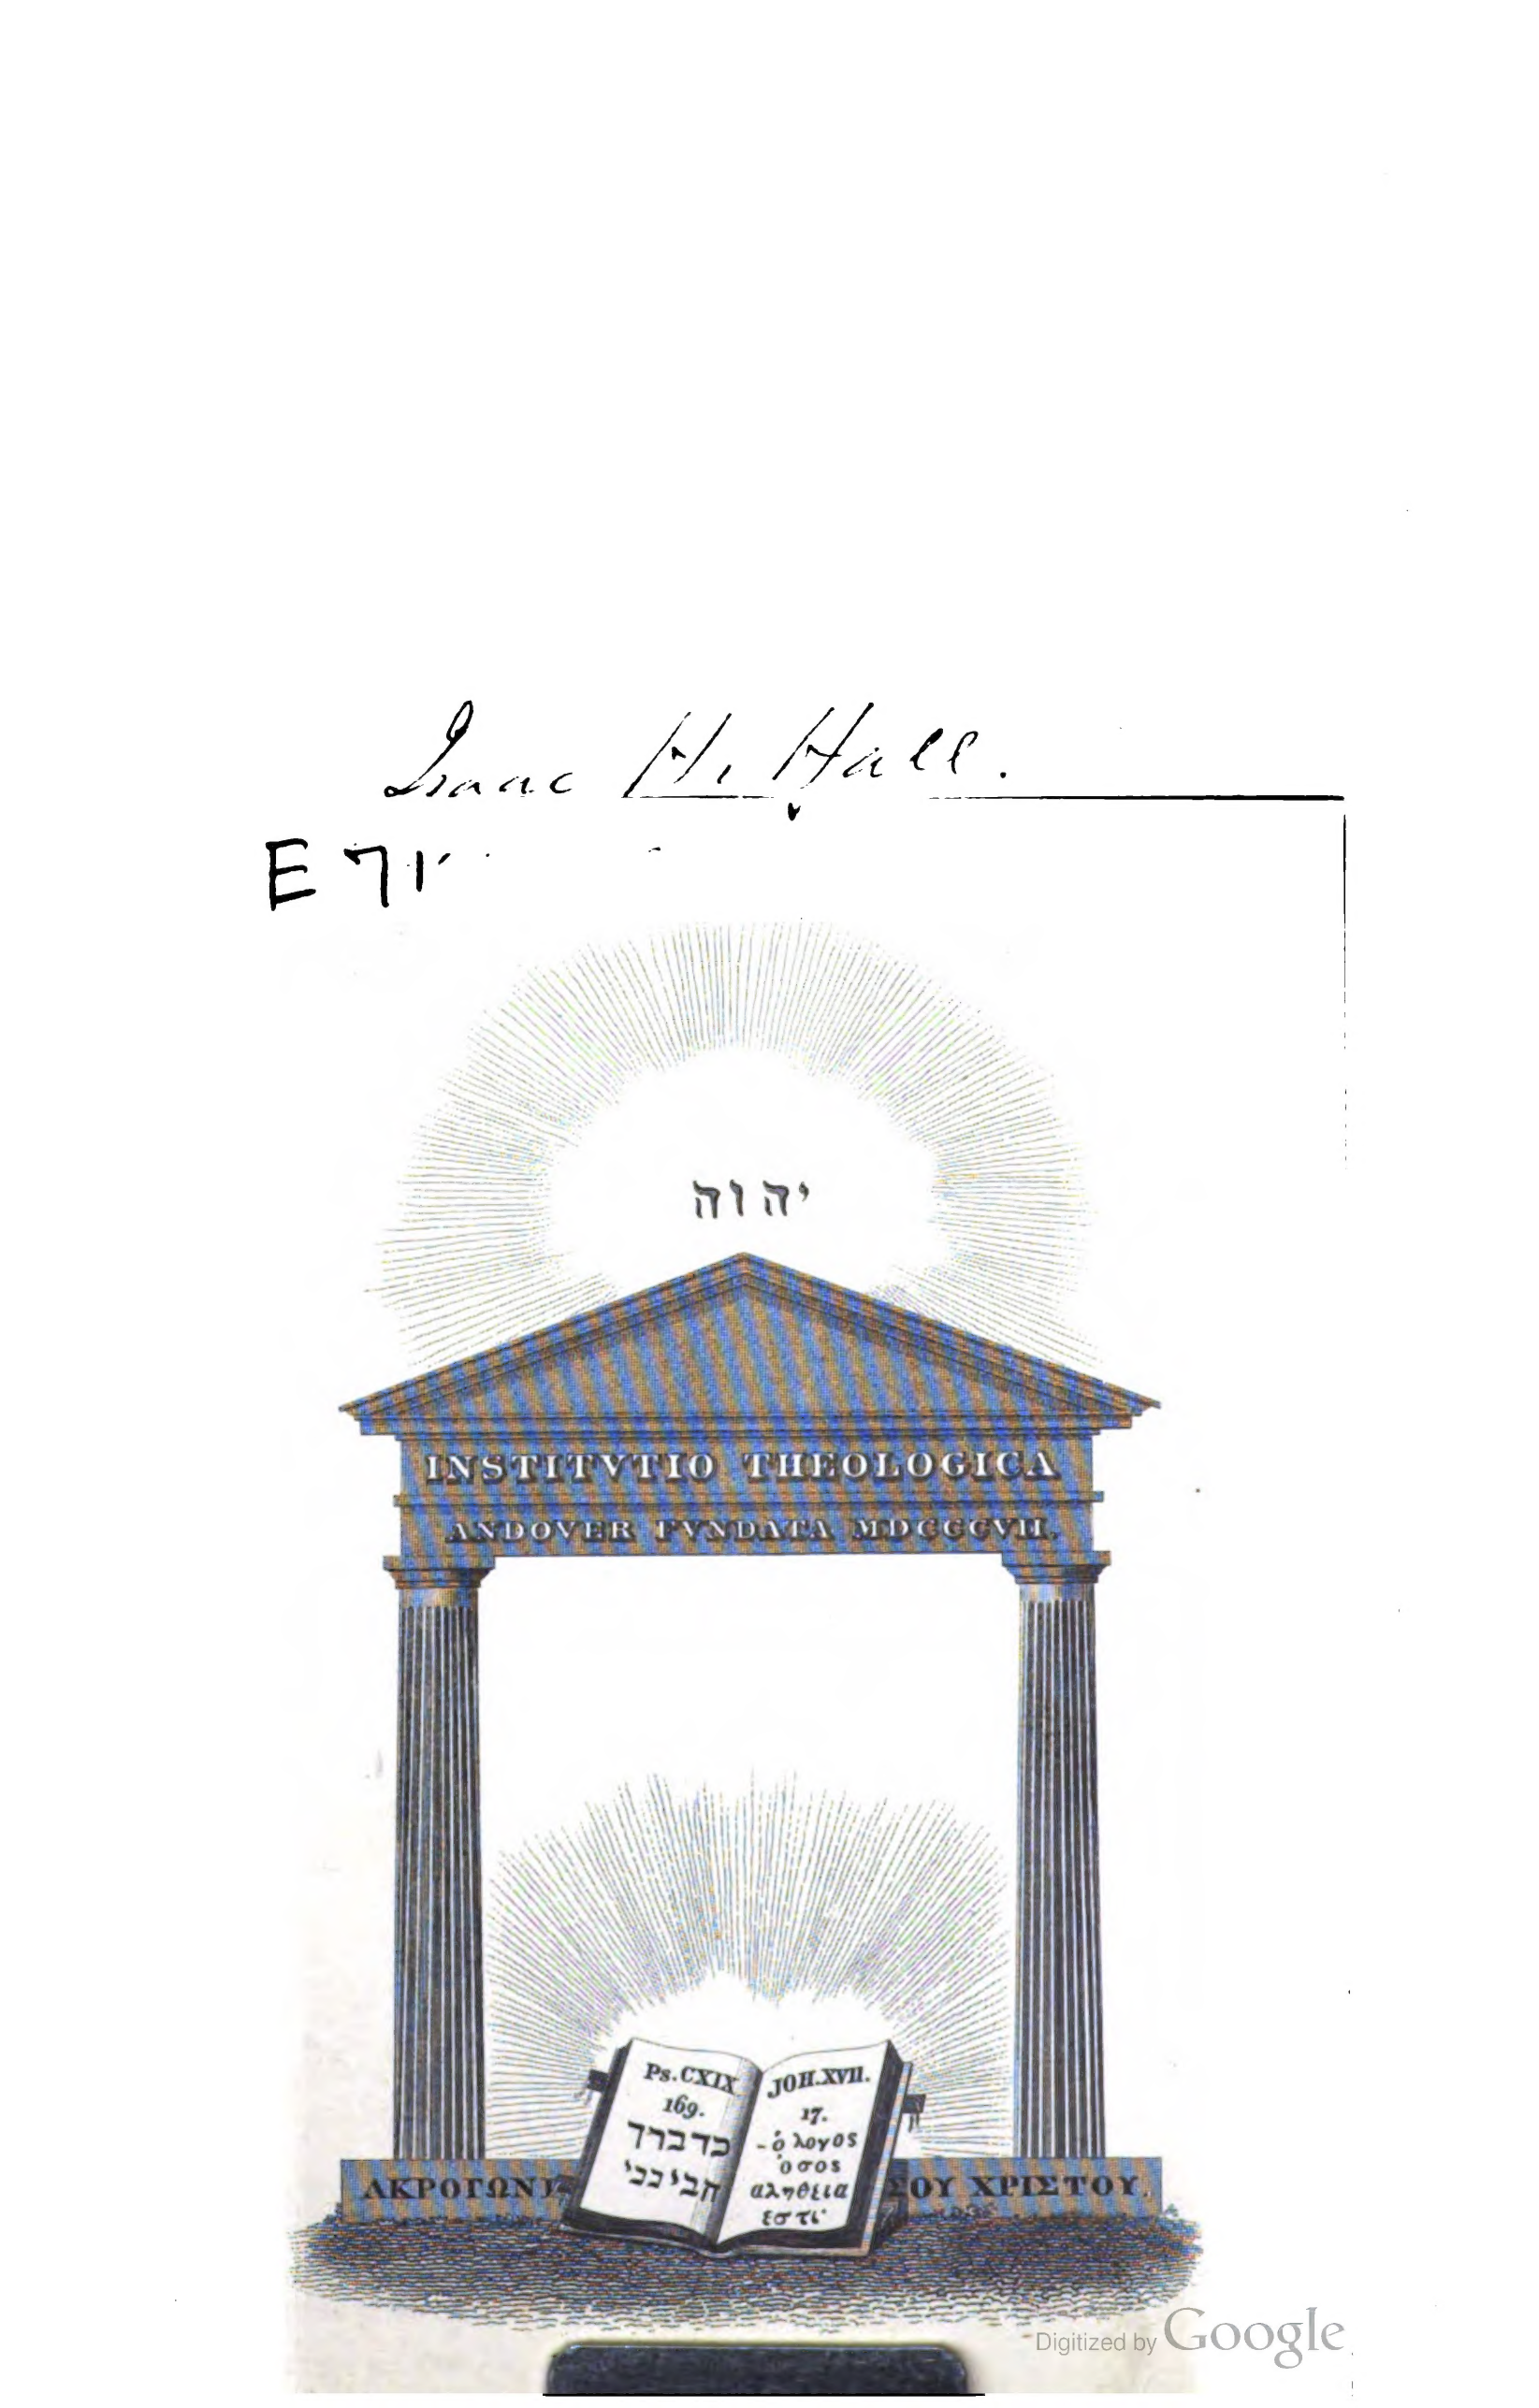 Isaac H. Hall.
יהוה
INSTITVTIO THEOLOGICA
ANDOVER FVNDATA MDCCCVII.
Ps. CXIX
169.
כדברך
הבינני
JOH. XVII.
17.
-ὁ λογος
ὁ σος
αληθεια
εστι·
ΑΚΡΟΓΩΝΙ
ΣΟΥ ΧΡΙΣΤΟΥ.
Digitized by Google